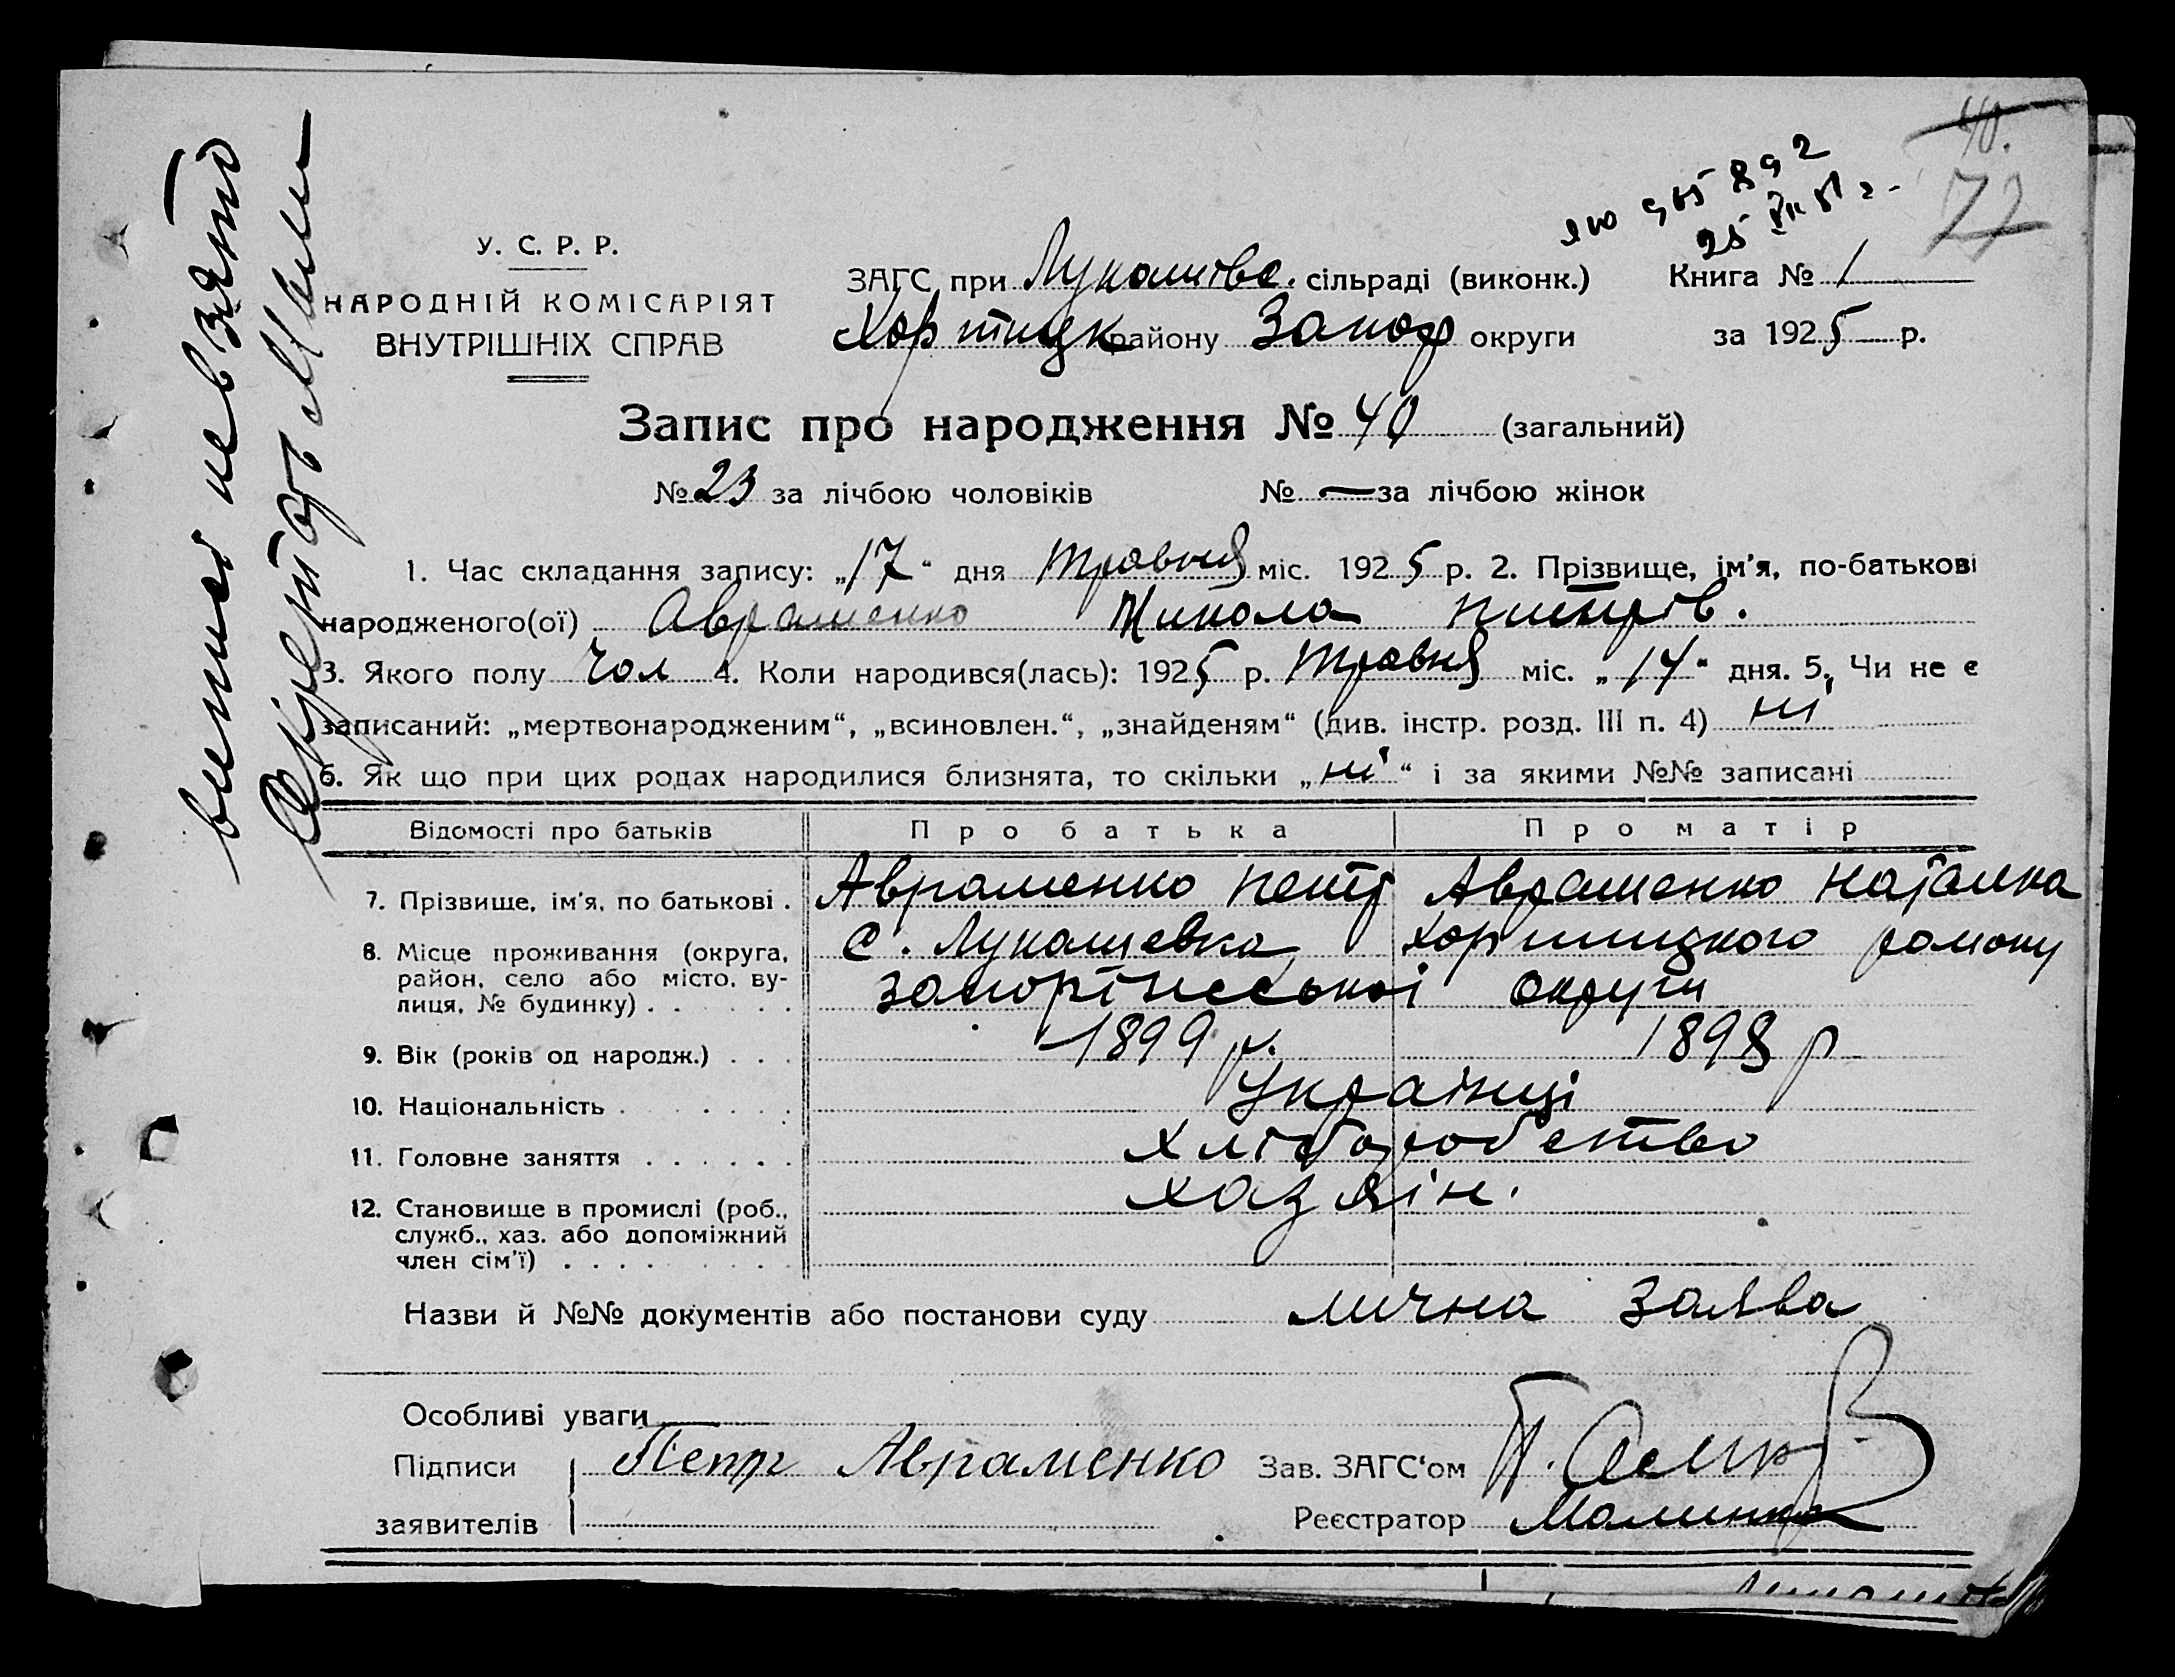 40.
77
яю 965892
25 VII 51 г.
У. С. Р. Р.
НАРОДНІЙ КОМІСАРІЯТ
ВНУТРІШНІХ СПРАВ
ЗАГС при Лукашівс. сільраді (виконк.) Книга № 1
Хортицк району Запор округи за 1925 р.
Запис про народження № 40 (загальний)
№ 23 за лічбою чоловіків № — за лічбою жінок
1. Час складання запису: „17“ дня травня міс. 1925 р. 2. Прізвище, ім'я, по-батькові
народженого(ої) Авраменко Микола питрів.
3. Якого полу чол 4. Коли народився(лась): 1925 р. травня міс. „14“ дня. 5. Чи не є
записаний: „мертвонародженим“, „всиновлен.“, „знайденям“ (див. інстр. розд. III п. 4) ні
6. Як що при цих родах народилися близнята, то скільки „ні“ і за якими №№ записані
Відомості про батьків Про батька Про матір
7. Прізвище, ім'я, по батькові . Авраменко петр Авраменко наталка
8. Місце проживання (округа, с. Лукашевка Хортицкого району
район, село або місто, ву- запоріжської округи
лиця, № будинку) . . . . . .
9. Вік (років од народж.) . . . 1899 р. 1898 р
10. Національність . . . . . . . Українці
11. Головне заняття . . . . . . хліборобство
12. Становище в промислі (роб., хазяін.
служб., хаз. або допоміжний
член сім'ї) . . . . . . . . .
Назви й №№ документів або постанови суду лична заява
Особливі уваги —
Підписи Петр Авраменко Зав. ЗАГС'ом П.
заявителів Реєстратор
випис не взято